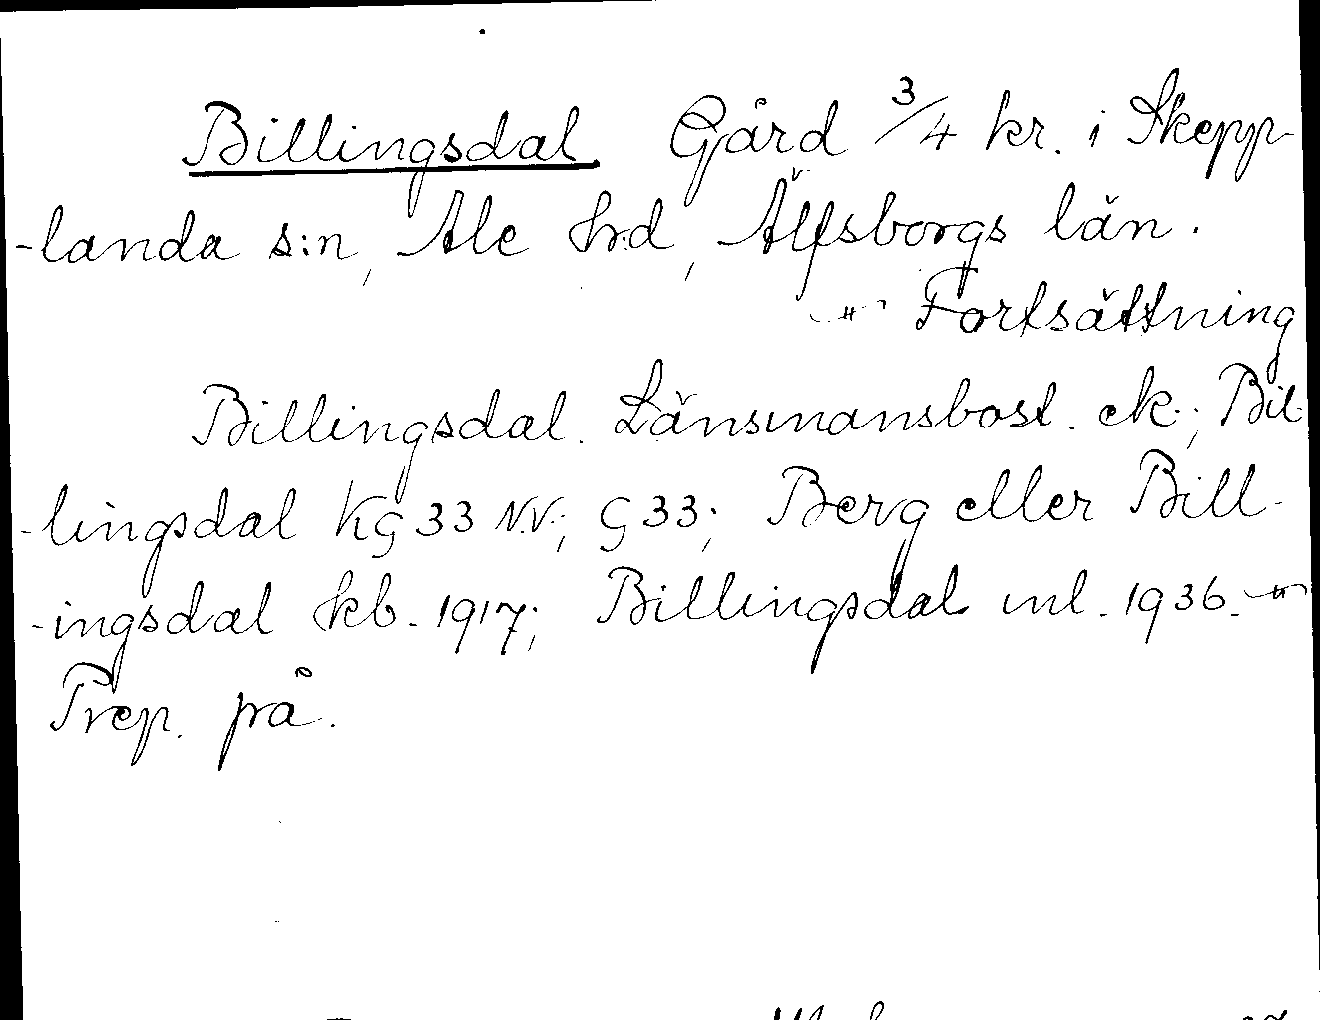 Billingsdal. Gård 3/4 kr. i Skepp-
-landa s:n, Ale hrd, Älfsborgs län.
-"- Fortsättning
Billingsdal. Länsmansbost. ek.; Bil-
-lingsdal Kg 33 N.V.; G 33; Berg eller Bill-
-ingsdal kb. 1917; Billingsdal ml. 1936. -"-
Prep. på.